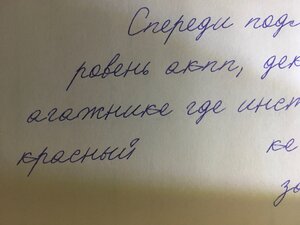 Спереди подз
ровень акпп, дек
агажнике где инст
красный ке
зо